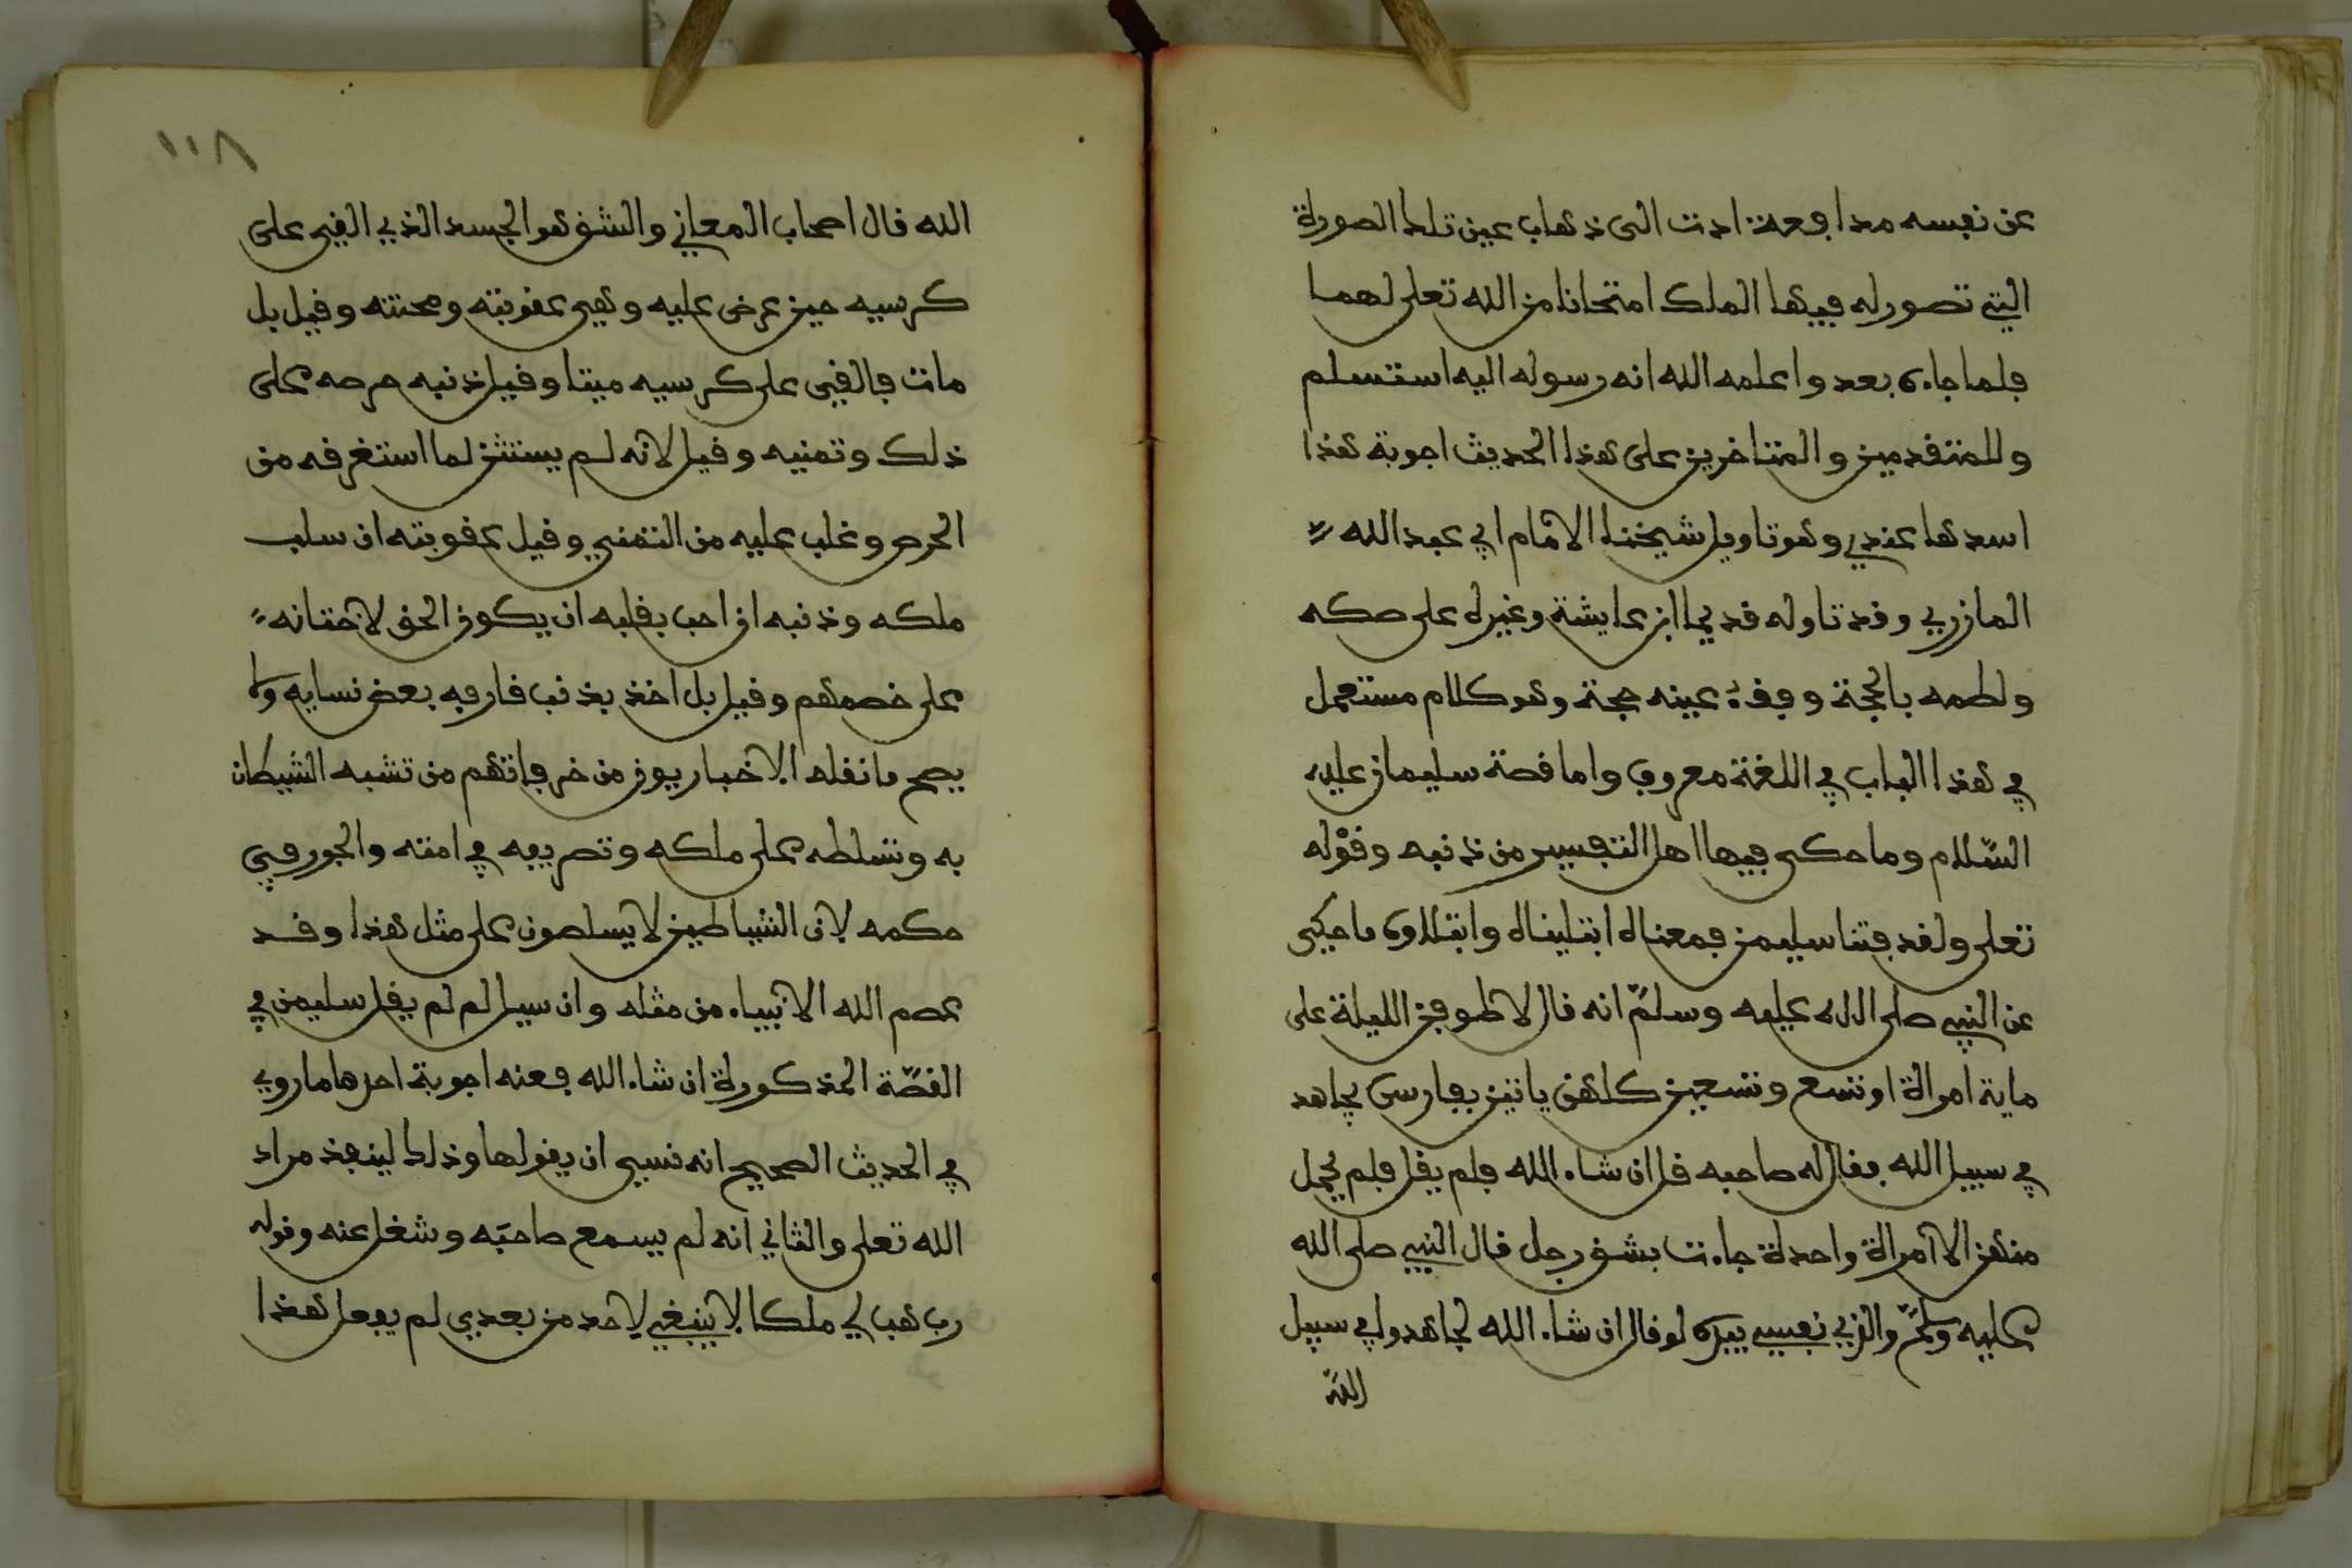 عن نفسه مدافعة ادت الى ذهاب عين تلك الصورة
التي تصور له فيها الملك امتحانا من الله تعلى لهما
فلما جاءه بعد واعلمه الله انه رسوله اليه استسلم
وللمتقدمين والمتاخرين على هذا الحديث اجوبة هذا
اسدها عندي وهو تاويل شيخنا الامام ابي عبد الله
المازري وقد تاوله قديما ابن عايشة وغيره على صكه
ولطمه بالحجة وفقء عينه حجة وهو كلام مستعمل
في هذا الباب في اللغة معروف واما قصة سليمان عليه
السّلام وما حكى فيها اهل التفسير من ذنبه وقوْله
تعلى ولقد فتنا سليمن فمعناه ابتليناه وابتلاوه ما حكى
عن النبي صلى الله عليه وسلمّ انه قال لاطوفن الليلة على
ماية امراة او تسع وتسعين كلهن ياتين بفارس يجاهد
في سبيل الله فقال له صاحبه قل ان شاء الله فلم يقل فلم تحمل
منهن الا امراة واحدة جاءت بشق رجل قال النبي صلى الله
عليه وسلمّ والذي نفسي بيده لو قال ان شاء الله لجاهدوا في سبيل
اللّه
١١٨
الله قال اصحاب المعاني والشق هو الجسد الذي القي على
كرسيه حين عرض عليه وهي عقوبته ومحنته وقيل بل
مات فالقي على كرسيه ميتا وقيل ذنبه حرصه على
ذلك وتمنيه وقيل لانه لم يستثن لما استغرقه من
الحرص وغلب عليه من التمني وقيل عقوبته ان سلب
ملكه وذنبه ان احب بقلبه ان يكون الحق لاختانه
على خصمهم وقيل بل اخذ بذنب قارفه بعض نسايه ولا
يصح ما نقله الاخباريون من خرفاتهم من تشبه الشيطان
به وتسلطه على ملكه وتصريفه في امته والجور في
حكمه لان الشياطين لا يسلطون على مثل هذا وقد
عصم الله الانبياء من مثله وان سيل لم لم يقل سليمن في
القصّة المذكورة ان شاء الله فعنه اجوبة احدها ما روي
في الحديث الصحيح انه نسي ان يقولها وذلك لينفذ مراد
الله تعلى والثاني انه لم يسمع صاحبه وشغل عنه وقوله
رب هب لي ملكا لا ينبغي لاحد من بعدي لم يفعل هذا